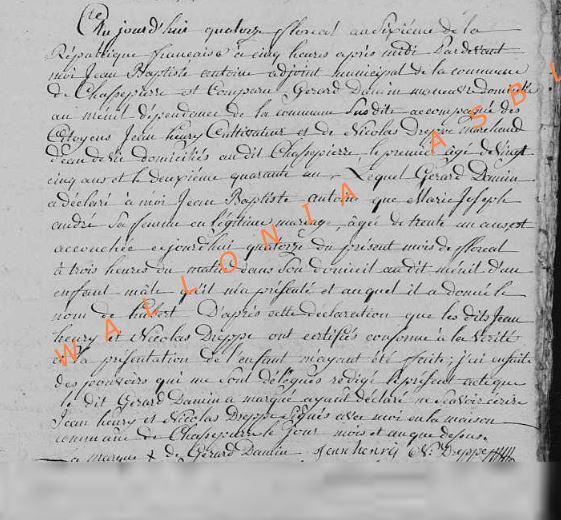 Cejourd'huis quatorze floreal an Sixieme de la
République française a cinq heures après midi Pardevant
moi Jean Baptiste antoine adjoint municipal de la commune
de Chassepierre est comparu Gerard Damin manœuvre domicilié
au ménil dépendance de la commune Susdite accompagné des
Citoyens Jean henry Cultivateur et de Nicolas Dreppe marchand
domiciliés audit Chassepierre, le premier agé de Vingt
cinq ans et le deuxième quarante un, Lequel Gérard Damin
a déclaré à moi Jean Baptiste antoine que Marie Joseph
andré Sa femme en légitime mariage, âgée de trente un ans est
accouchée cejourd'hui quatorze du présent mois de floreal
à trois heures du matin dans Son domicil audit ménil d'un
enfant mâle qu'il m'a présenté et auquel il a donné le
nom de hubert D'après cette déclaration que les dits Jean
henry et Nicolas Dreppe ont certifiés conforme à la Vérité
et la présentation de l'enfant m'ayant été faite; j'ai ensuite
des pouvoirs qui me Sont délégués rédigé le présent acte que
le dit Gérard Damin a marqué ayant déclaré ne Savoir écrire
Jean henry et Nicolas Dreppe Signés avec moi en la maison
commune de Chassepierre le Jour mois et an que dessus.
La marque X de Gérard Damin Jean henry N. Dreppe
WALLONIA ASBL